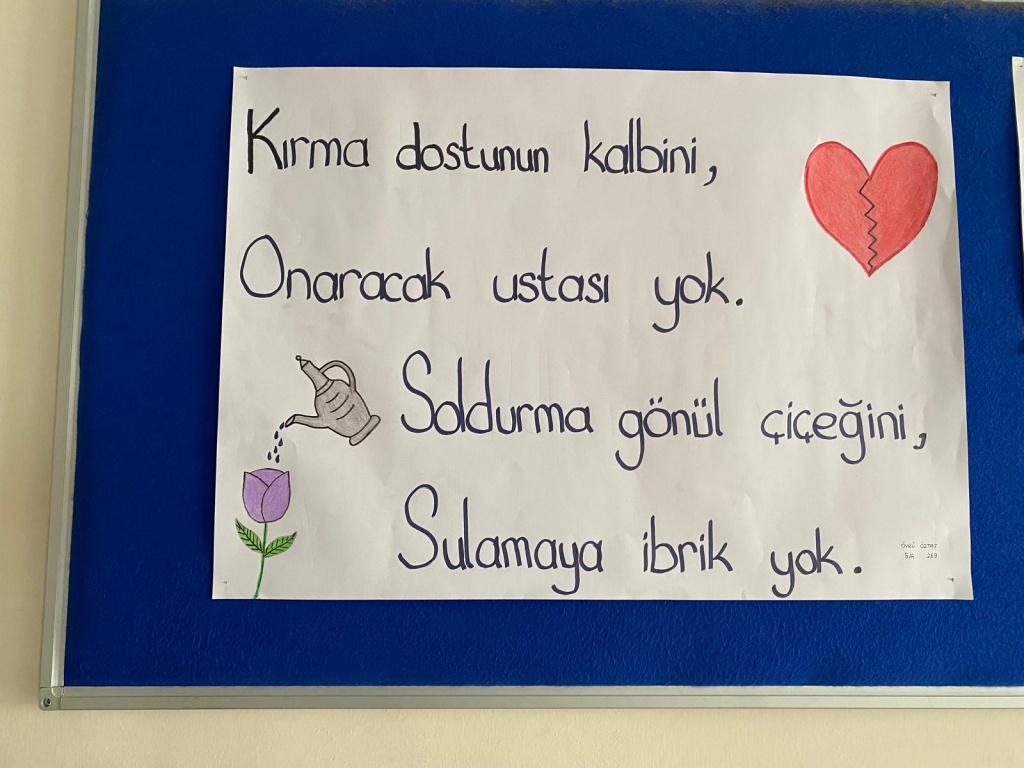 Kırma dostunun kalbini,
Onaracak ustası yok.
Soldurma gönül çiçeğini,
Sulamaya ibrik yok.
5/A 269